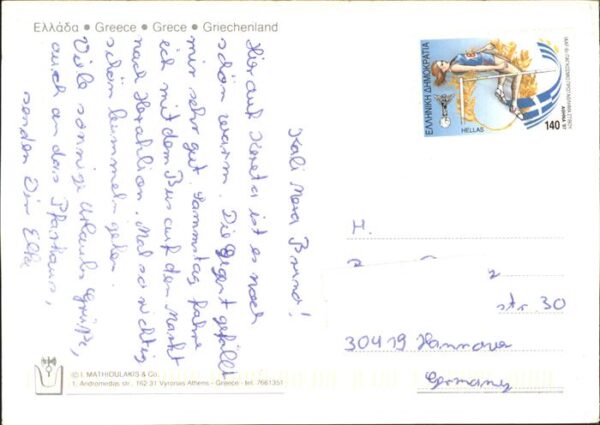 Ελλάδα • Greece • Grece • Griechenland
Kali Mera Bruno!
Hier auf Kreta ist es noch
schön warm. Die Gegend gefällt
mir sehr gut. Samstag fahre
ich mit dem Bus auf den Markt
nach Heraklion. Mal so richtig
schön bummeln gehen.
Viele sonnige Urlaubsgrüße,
auch an das Pfarrhaus,
senden Dir Elke
ΕΛΛΗΝΙΚΗ ΔΗΜΟΚΡΑΤΙΑ
HELLAS
140
H.
str. 30
30419 Hannover
Germany
© I. MATHIOULAKIS & Co.
1, Andromedas str., 162 31 Vyronas Athens - Greece - tel. 7661351